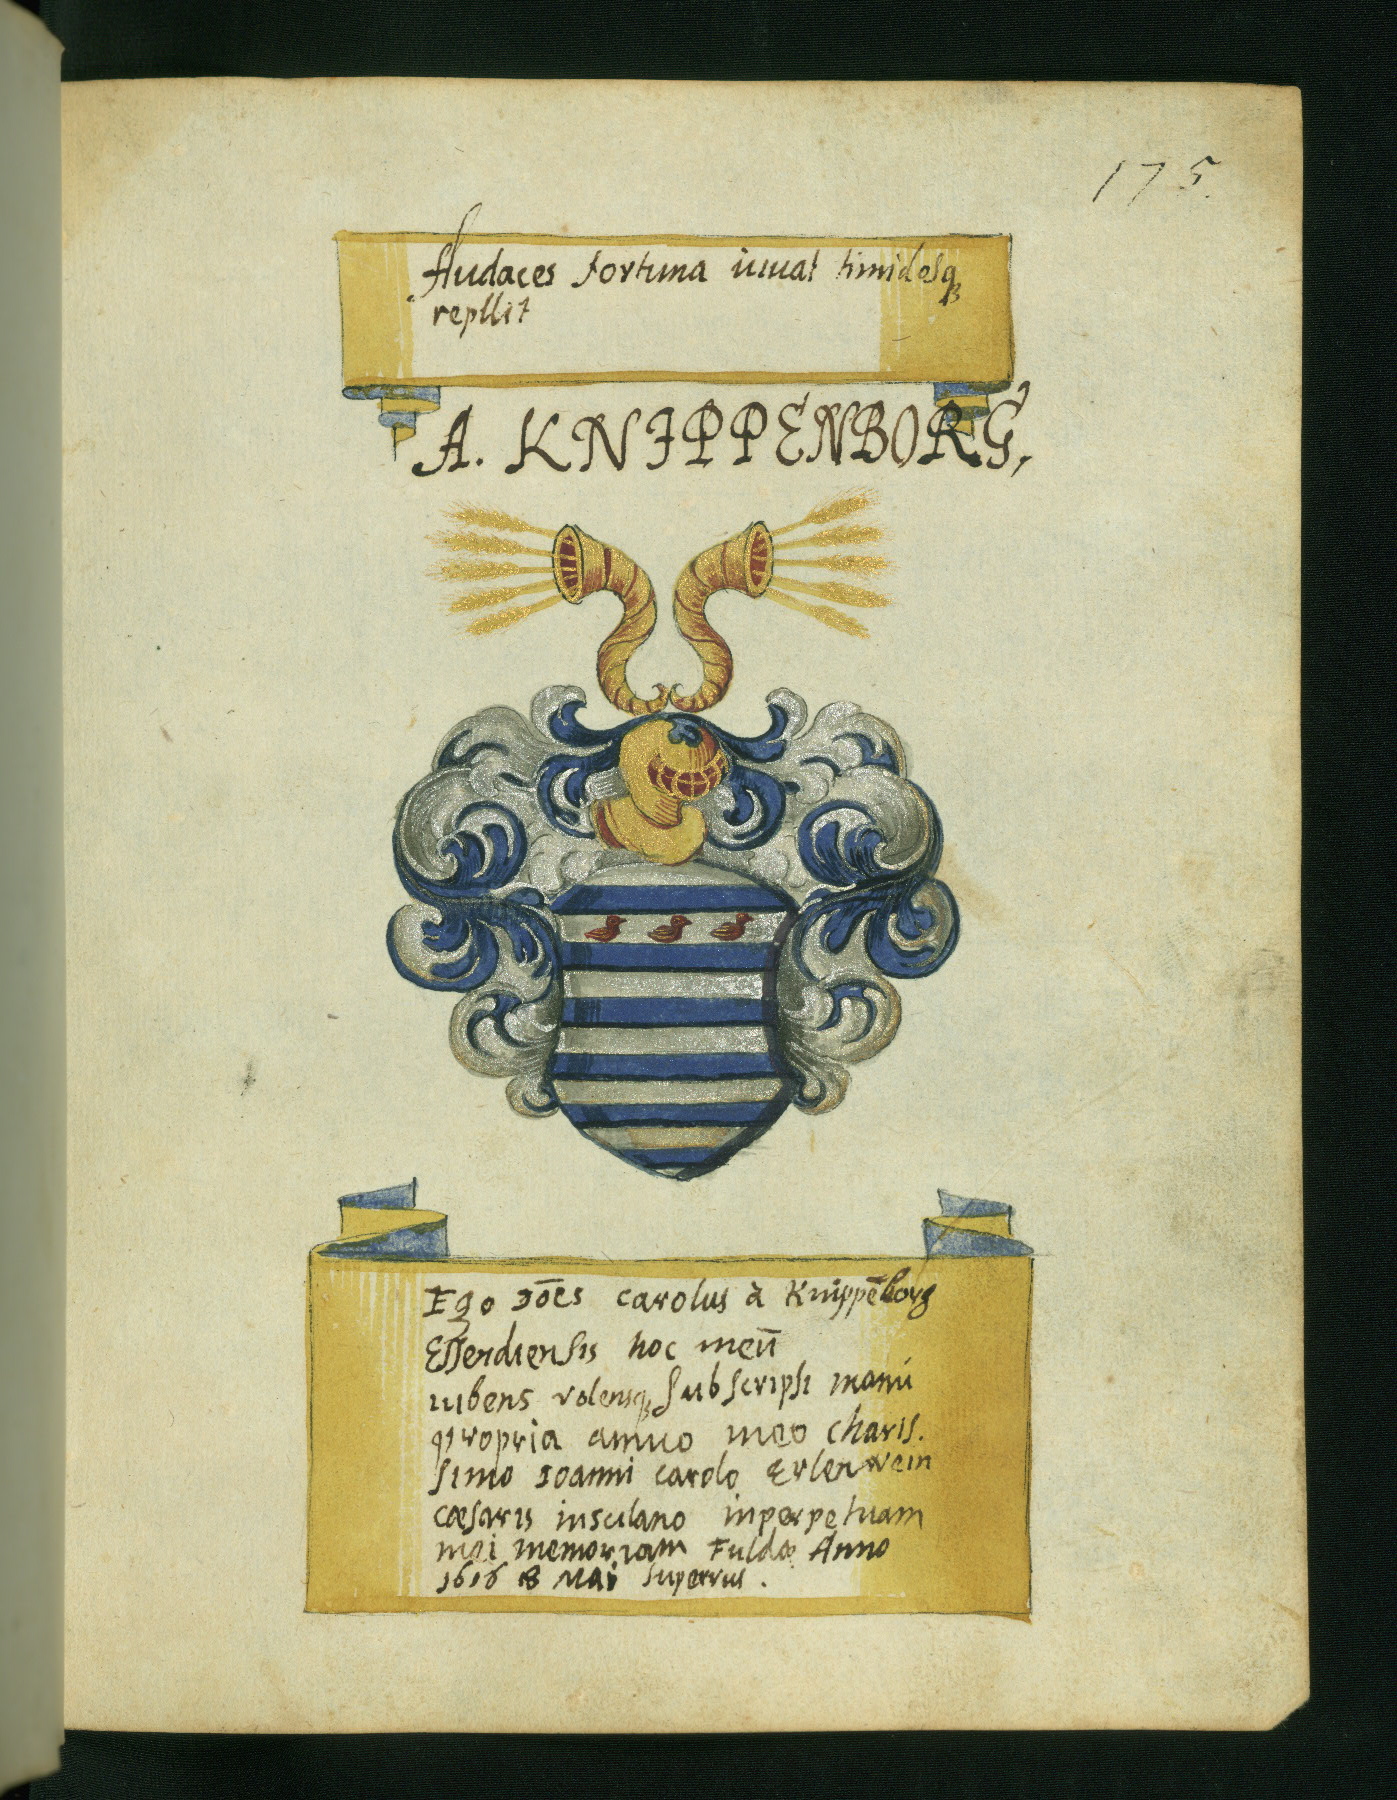 175.
Audaces fortuna iuuat timidosq₃
repllit
A. KNIPPENBORG,
Ego Jōes carolus à Knippēborg
Essendiensis hoc meū
iubens volensq₃ subscripsi manu
propria amico meo charis.
simo Joanni carolo Erlenwein
cæsaris insulano inperpetuam
mei memoriam Fuldæ Anno
1616 8 Mai